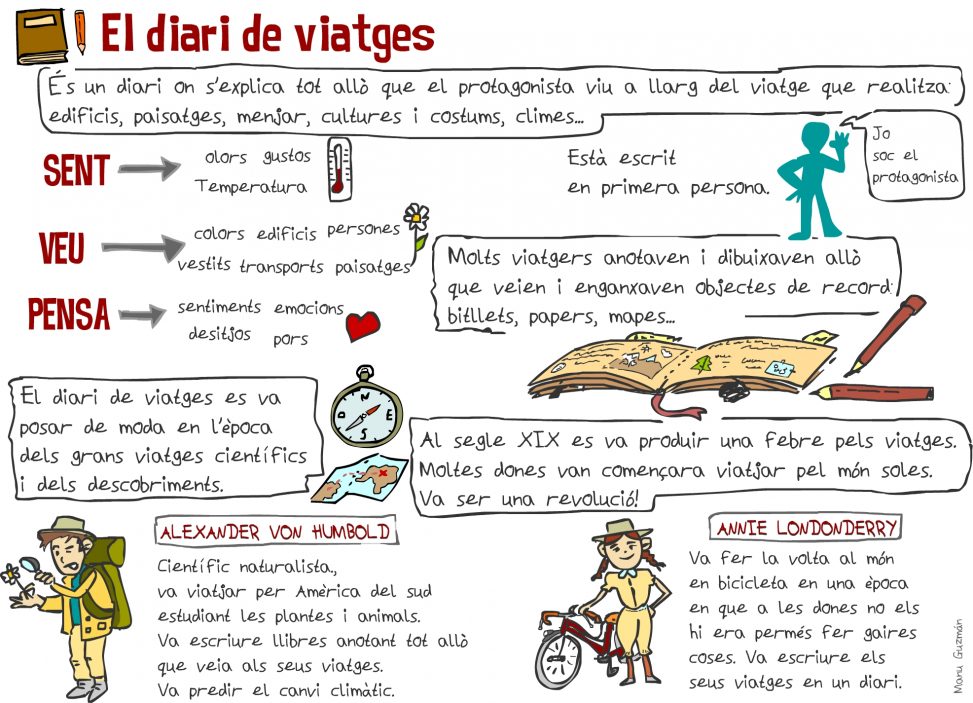 El diari de viatges
És un diari on s'explica tot allò que el protagonista viu a llarg del viatge que realitza:
edificis, paisatges, menjar, cultures i costums, climes...
SENT
olors gustos
Temperatura
Està escrit
en primera persona.
Jo
soc el
protagonista
VEU
colors edificis persones
vestits transports paisatges
PENSA
sentiments emocions
desitjos pors
Molts viatgers anotaven i dibuixaven allò
que veien i enganxaven objectes de record:
bitllets, papers, mapes...
El diari de viatges es va
posar de moda en l'època
dels grans viatges científics
i dels descobriments.
N
E
S
Al segle XIX es va produir una febre pels viatges.
Moltes dones van començara viatjar pel món soles.
Va ser una revolució!
ALEXANDER VON HUMBOLD
Científic naturalista,
va viatjar per Amèrica del sud
estudiant les plantes i animals.
Va escriure llibres anotant tot allò
que veia als seus viatges.
Va predir el canvi climàtic.
ANNIE LONDONDERRY
Va fer la volta al món
en bicicleta en una època
en que a les dones no els
hi era permés fer gaires
coses. Va escriure els
seus viatges en un diari.
Manu Guzmán